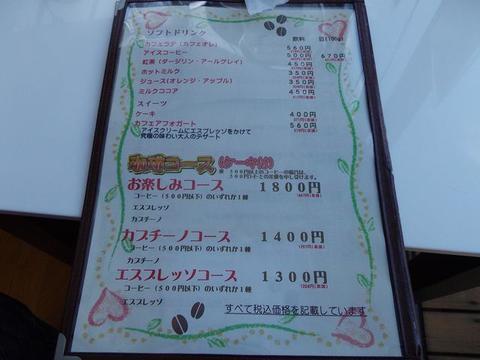 ソフトドリンク 飲料
カフェラテ(カフェオレ) 560円
アイスコーヒー 500円 670円
紅茶(ダージリン・アールグレイ) 450円
ホットミルク 350円
ジュース(オレンジ・アップル) 350円
ミルクココア 450円
スイーツ
ケーキ 400円
カフェアフォガート 560円
アイスクリームにエスプレッソをかけて
究極の味わい大人のデザート
珈琲コース(ケーキ付)
お楽しみコース 1800円
コーヒー(500円以下)のいずれか1種
エスプレッソ
カプチーノ
カプチーノコース 1400円
コーヒー(500円以下)のいずれか1種
カプチーノ
エスプレッソコース 1300円
コーヒー(500円以下)のいずれか1種
エスプレッソ
すべて税込価格を記載しています